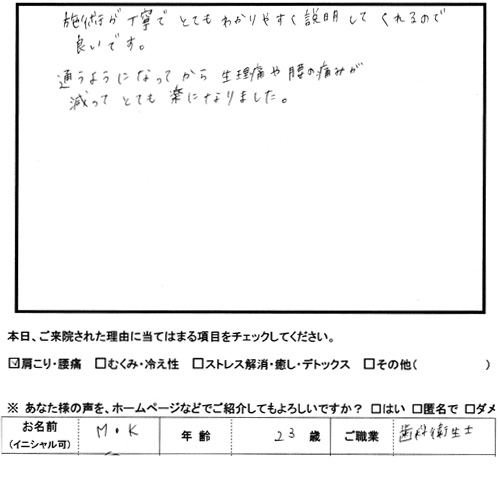 施術が丁寧でとてもわかりやすく説明してくれるので
良いです。
通うようになってから生理痛や腰の痛みが
減ってとても楽になりました。
本日、ご来院された理由に当てはまる項目をチェックしてください。
☑肩こり・腰痛 □むくみ・冷え性 □ストレス解消・癒し・デトックス □その他( )
※ あなた様の声を、ホームページなどでご紹介してもよろしいですか？ □はい □匿名で □ダメ
お名前 (イニシャル可) M・K 年齢 23 歳 ご職業 歯科衛生士